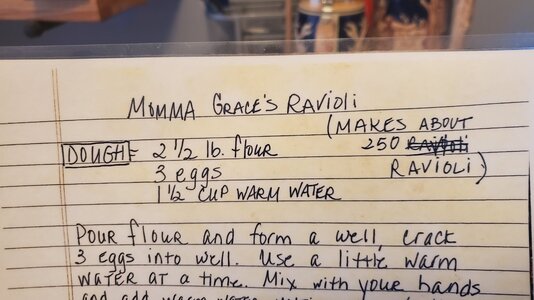 MOMMA GRACE'S RAVIOLI
(MAKES ABOUT
250 RAVIOLI)
DOUGH = 2 1/2 lb. flour
3 eggs
1 1/2 CUP WARM WATER
POUR flour and form a well, crack
3 eggs into well. Use a little warm
WATER AT a time. Mix with your hands
and add warm water